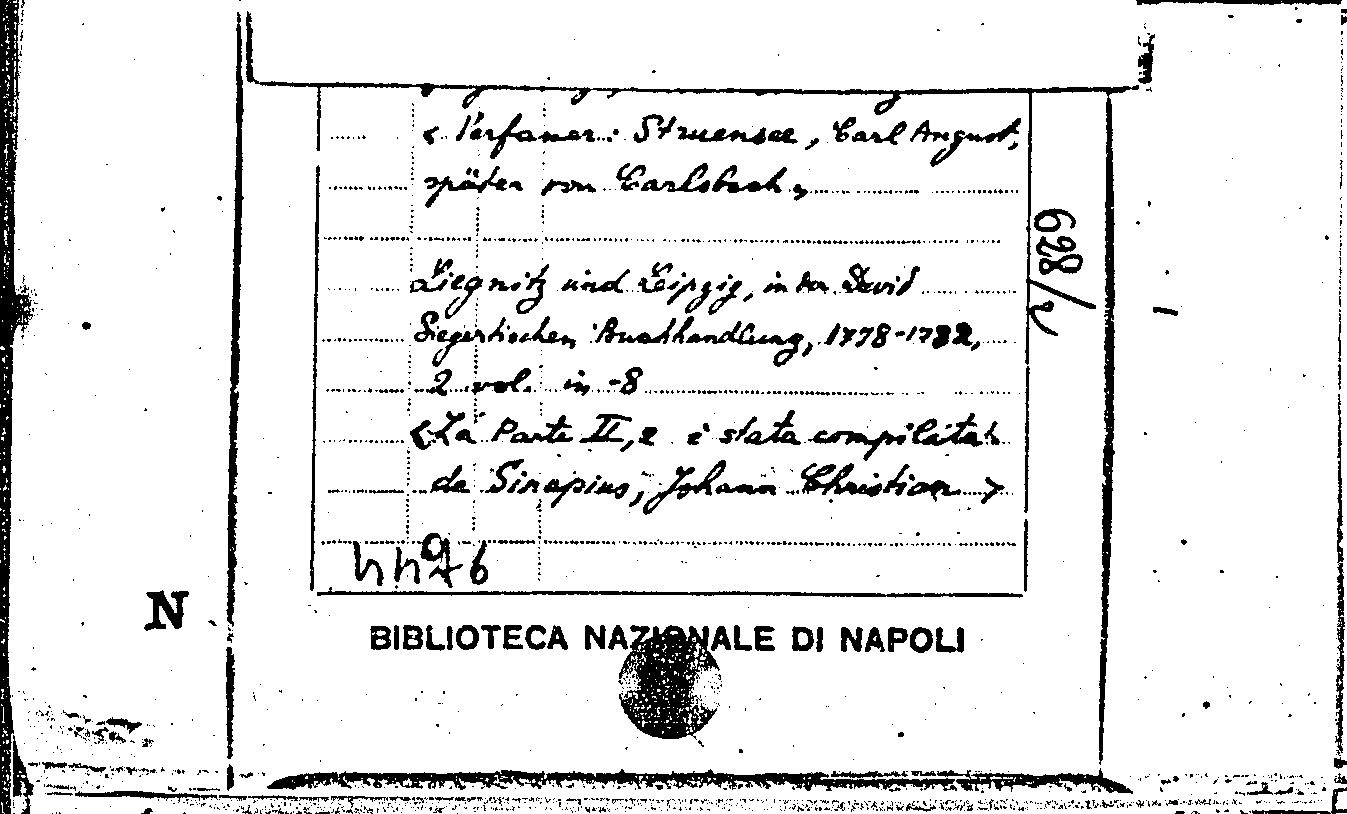 < Verfasser: Struensee, Carl August,
später von Carlsbach >
Liegnitz und Leipzig, in der David
Siegertischen Buchhandlung, 1778-1782,
2 vol. in -8
<La Parte II,2 è stata compilata
da Sinapius, Johann Christian >
628/2
N
BIBLIOTECA NAZIONALE DI NAPOLI